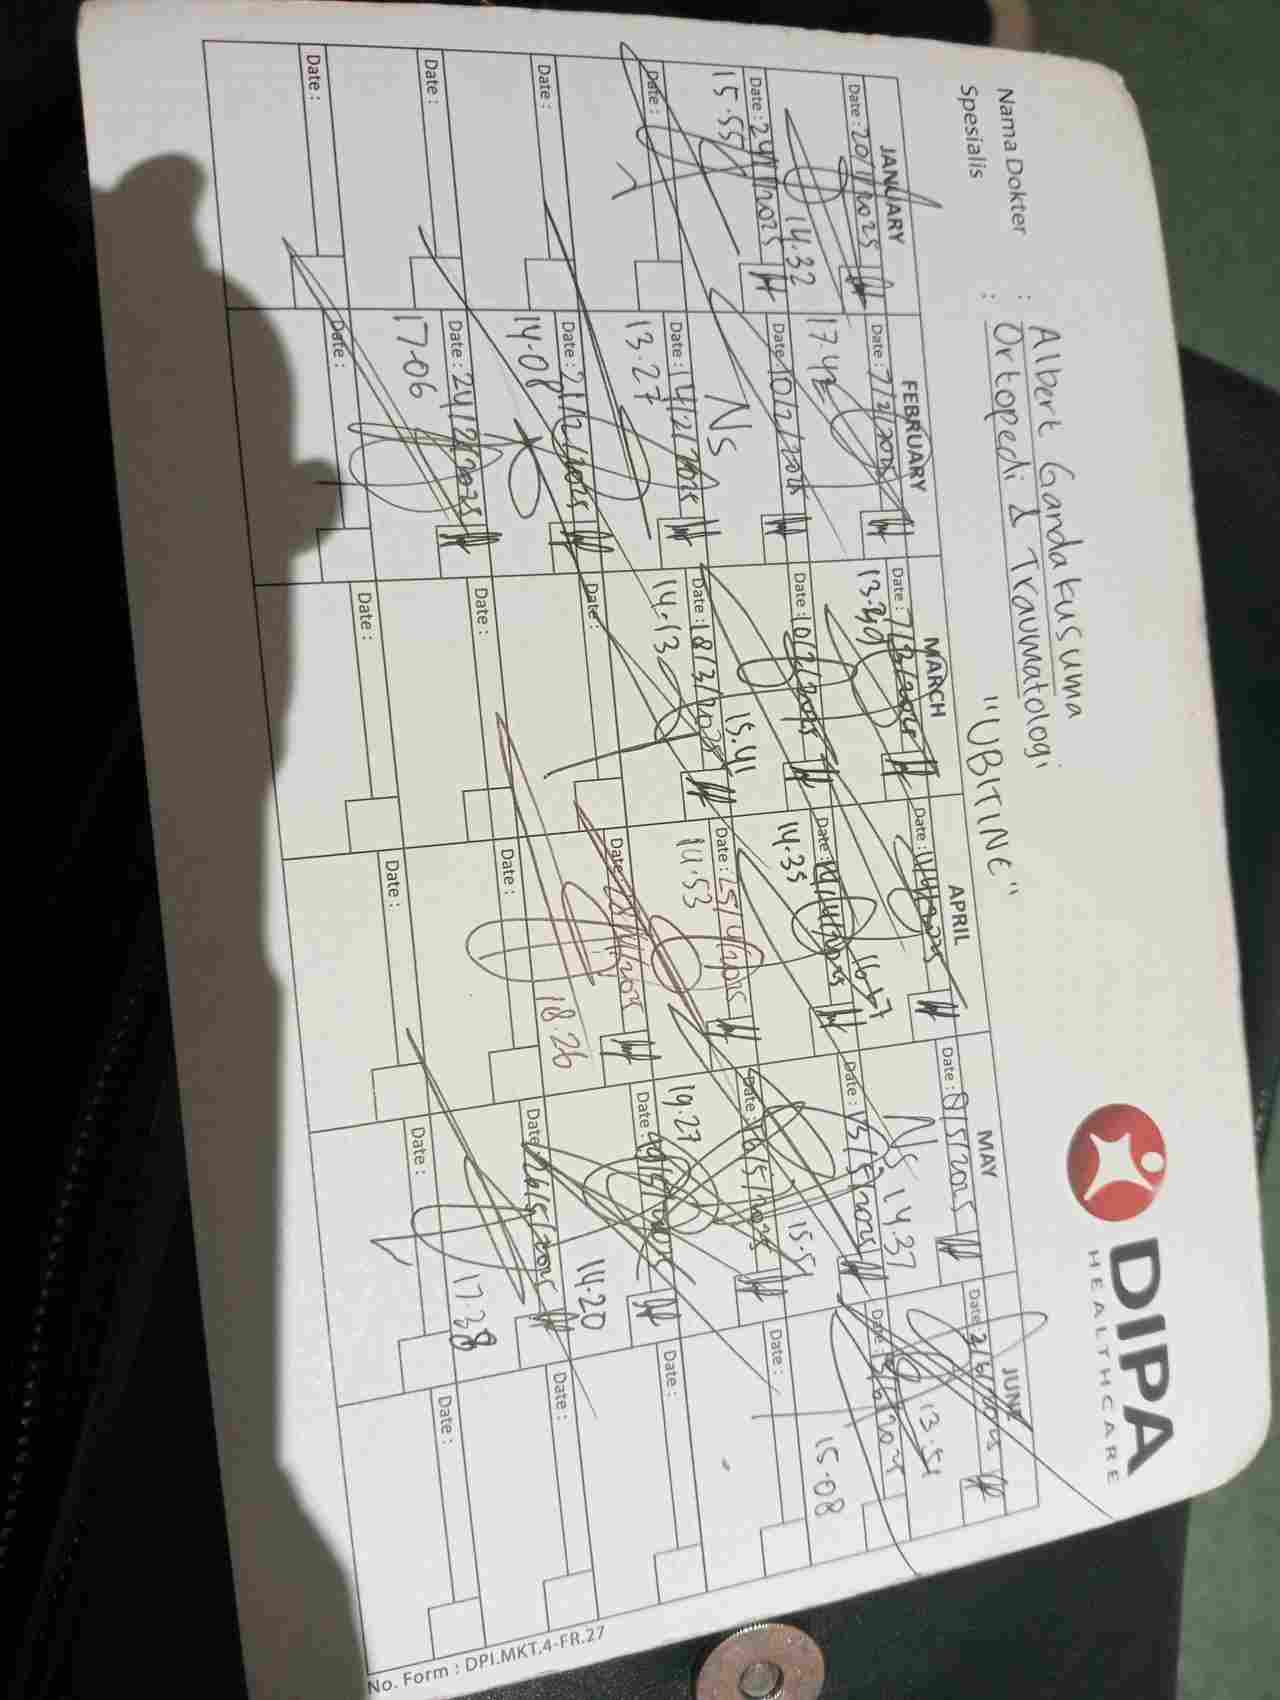 DIPA
HEALTHCARE
Nama Dokter : Albert Gandakusuma
Spesialis : Ortopedi & Traumatologi
"UBITINE"
JANUARY
Date : 20/1/2025
14.32
Date : 24/1/2025
15.55
Date :
Date :
Date :
Date :
FEBRUARY
Date : 7/2/2025
17.42
Date : 10/2/2025
NS
Date : 14/2/2025
13.27
Date : 21/2/2025
14.08
Date : 24/2/2025
17.06
Date :
MARCH
Date : 7/3/2025
Date : 10/3/2025
15.41
Date : 18/3/2025
14.13
Date :
Date :
Date :
APRIL
Date : 11/4/2025
Date : 14/4/2025
14.35
Date : 25/4/2025
14.53
Date : 28/4/2025
18.26
Date :
Date :
MAY
Date : 8/5/2025
NS 14.37
Date : 13/5/2025
Date : 16/5/2025
19.27
Date : 19/5/2025
14.20
Date :
17.38
Date :
JUNE
Date :
13.51
Date :
15.08
Date :
Date :
Date :
Date :
No. Form : DPI.MKT.4-FR.27